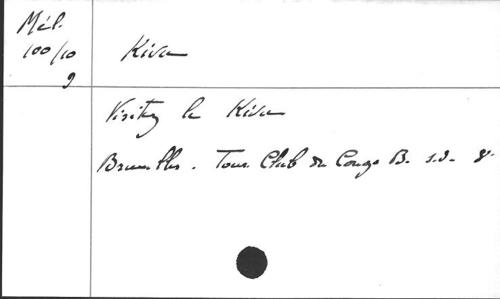 Mél.
100/10
9
Kivu
Visitez le Kivu
Bruxelles. Tour. Club du Congo B. s.d. 8°